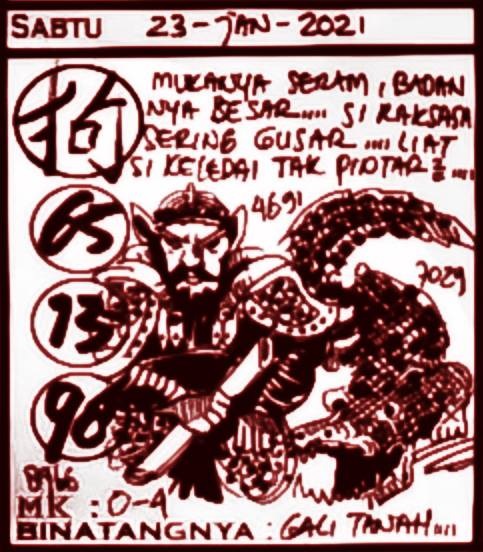 SABTU 23-JAN-2021
狗
MUKANYA SERAM, BADAN
NYA BESAR.... SI RAKSASA
SERING GUSAR .... LIAT
SI KELEDAI TAK PINTAR² ....
65
4691
7029
13
96
MK : 0-4
BINATANGNYA : GALI TANAH....